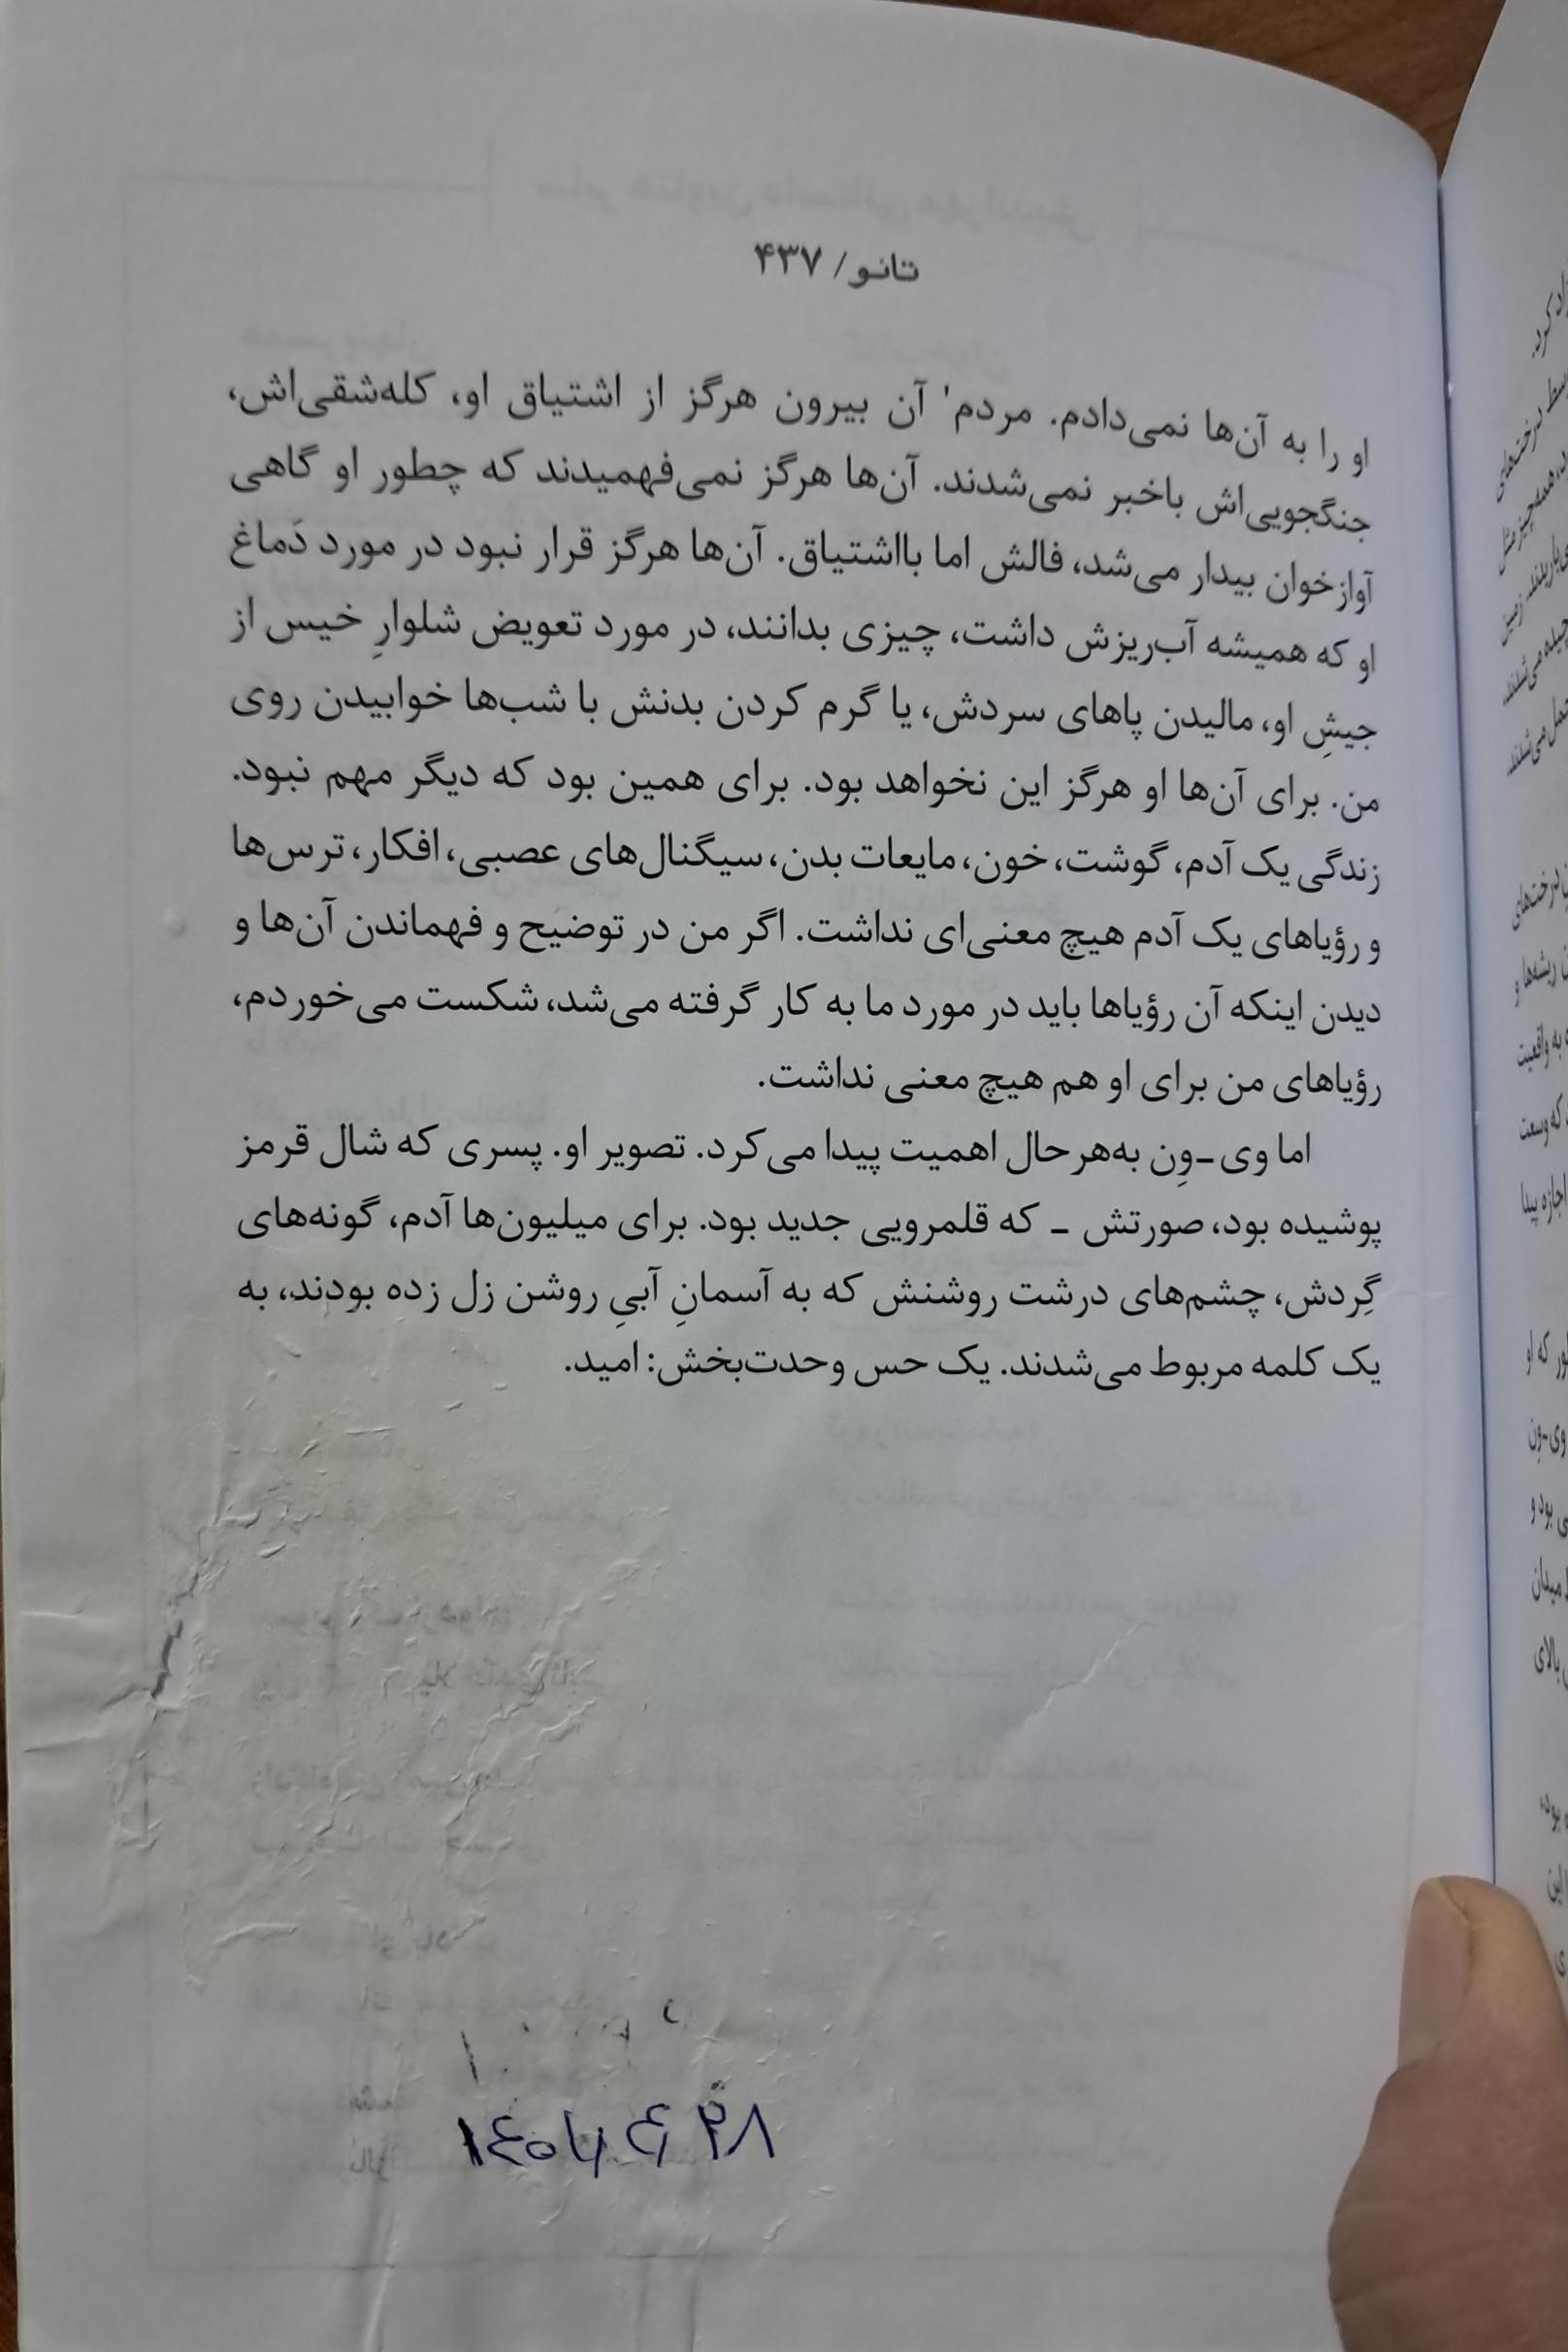 تانو / ۴۳۷
او را به آن‌ها نمی‌دادم. مردم' آن بیرون هرگز از اشتیاق او، کله‌شقی‌اش،
جنگجویی‌اش باخبر نمی‌شدند. آن‌ها هرگز نمی‌فهمیدند که چطور او گاهی
آوازخوان بیدار می‌شد، فالش اما بااشتیاق. آن‌ها هرگز قرار نبود در مورد دَماغ
او که همیشه آب‌ریزش داشت، چیزی بدانند، در مورد تعویض شلوارِ خیس از
جیشِ او، مالیدن پاهای سردش، یا گرم کردن بدنش با شب‌ها خوابیدن روی
من. برای آن‌ها او هرگز این نخواهد بود. برای همین بود که دیگر مهم نبود.
زندگی یک آدم، گوشت، خون، مایعات بدن، سیگنال‌های عصبی، افکار، ترس‌ها
و رؤیاهای یک آدم هیچ معنی‌ای نداشت. اگر من در توضیح و فهماندن آن‌ها و
دیدن اینکه آن رؤیاها باید در مورد ما به کار گرفته می‌شد، شکست می‌خوردم،
رؤیاهای من برای او هم هیچ معنی نداشت.
اما وی‌ـوِن به‌هرحال اهمیت پیدا می‌کرد. تصویر او. پسری که شال قرمز
پوشیده بود، صورتش ـ که قلمرویی جدید بود. برای میلیون‌ها آدم، گونه‌های
گِردش، چشم‌های درشت روشنش که به آسمانِ آبیِ روشن زل زده بودند، به
یک کلمه مربوط می‌شدند. یک حس وحدت‌بخش: امید.